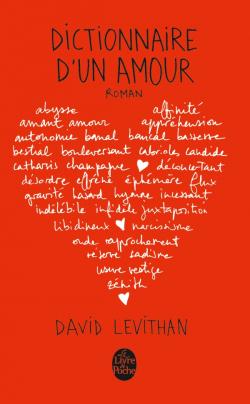 DICTIONNAIRE
D'UN AMOUR
ROMAN
abysse affinité
amant amour appréhension
autonomie banal bancal bassesse
bestial bouleversant cabrioles candide
catharsis champagne déconcertant
désordre effréné éphémère flux
gravité hasard hymne incessant
indélébile infidèle juxtaposition
libidineux narcissisme
onde rapprochement
réserve sadisme
usure vestige
zénith
DAVID LEVITHAN
Le Livre de Poche